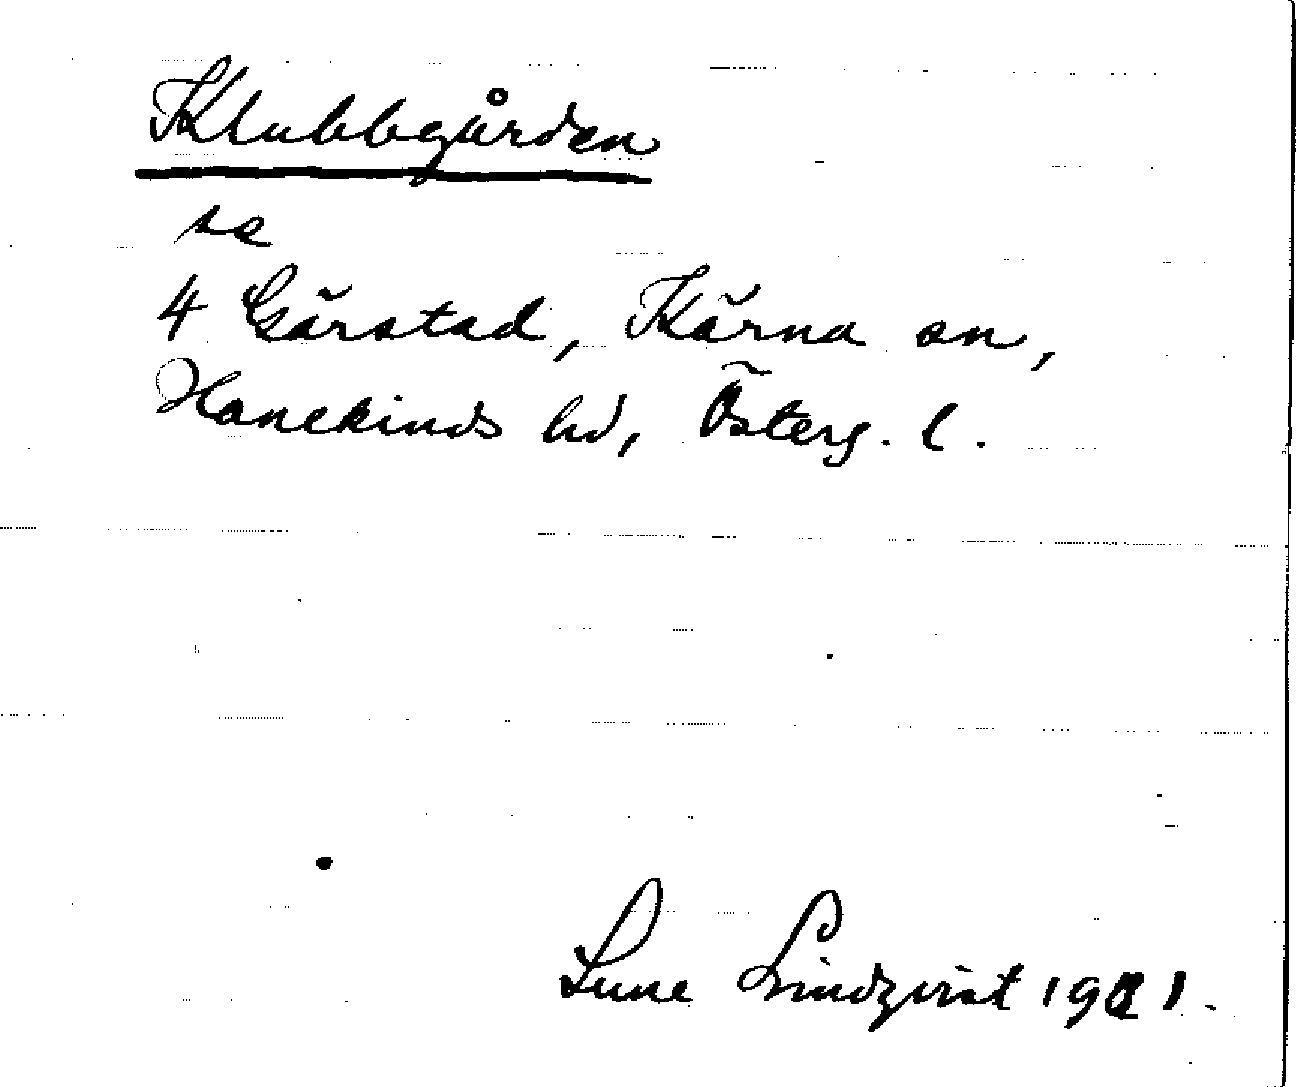 Klubbgården
se
4 Gärstad, Kärna sn,
Hanekinds hd, Österg. l.
Sune Lindqvist